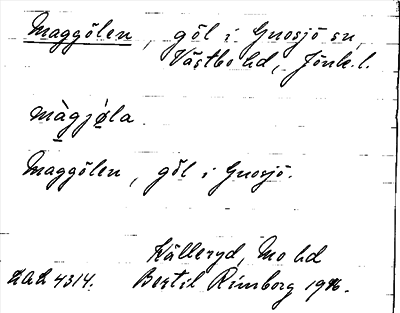 Maggölen, göl i Gnosjö sn,
Västbo hd, Jönk. l.
màgjøla.
Maggölen, göl i Gnosjö.
Källeryd, Mo hd
4314. Bertil Rimborg 1946.